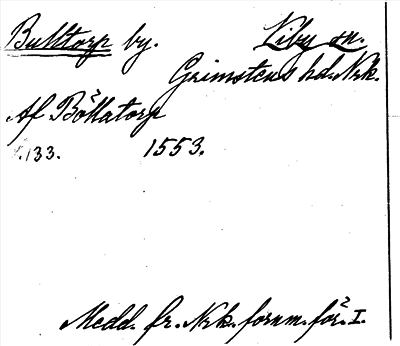 Bulltorp by. Viby sn.
Grimstens hd. Nrk.
Af Böllatorp
s. 133. 1553.
Medd. fr. Nrk. fornm. för. I.